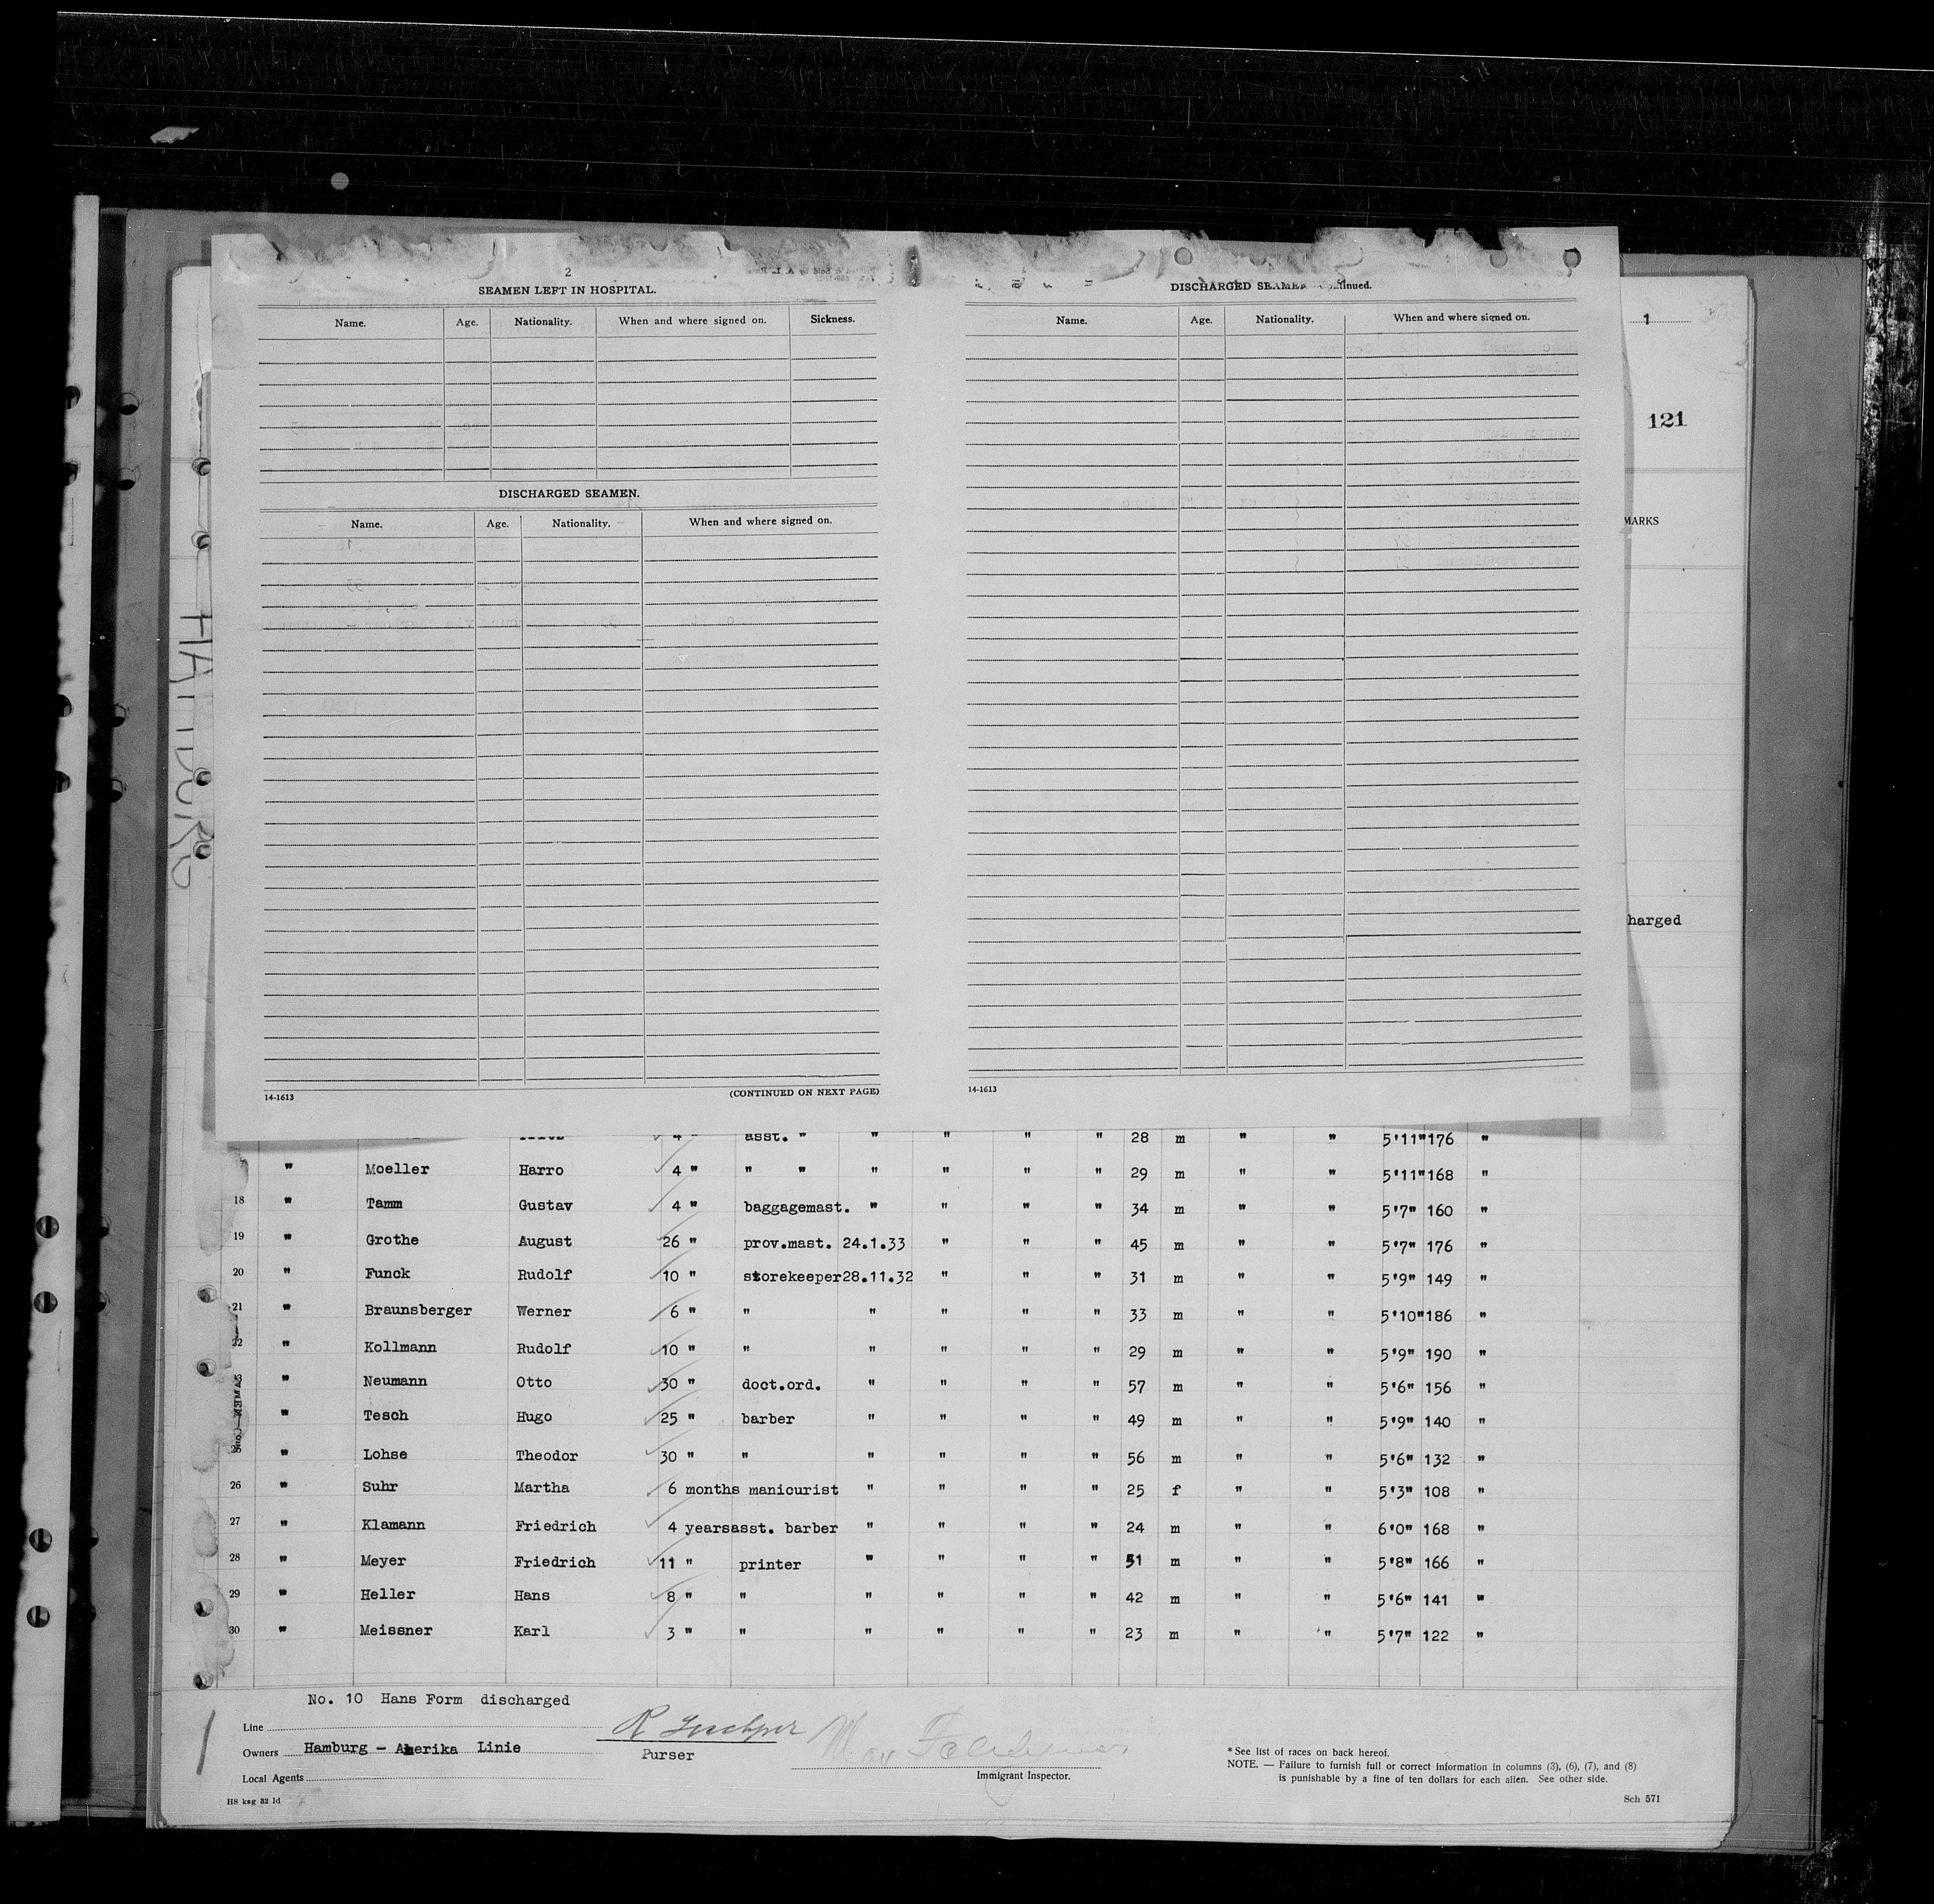 2
SEAMEN LEFT IN HOSPITAL.
Name. Age. Nationality. When and where signed on. Sickness.
DISCHARGED SEAMEN.
Name. Age. Nationality. When and where signed on.
14-1613 (CONTINUED ON NEXT PAGE)
DISCHARGED SEAMEN
Name. Age. Nationality. When and where signed on.
14-1613
1
121
MARKS
harged
HAMBURG
4 " asst. " " " " " 28 m " " 5'11" 176 "
" Moeller Harro 4 " " " " " " " 29 m " " 5'11" 168 "
18 " Tamm Gustav 4 " baggagemast. " " " " 34 m " " 5'7" 160 "
19 " Grothe August 26 " prov.mast. 24.1.33 " " " 45 m " " 5'7" 176 "
20 " Funck Rudolf 10 " storekeeper 28.11.32 " " " 31 m " " 5'9" 149 "
21 " Braunsberger Werner 6 " " " " " " 33 m " " 5'10" 186 "
22 " Kollmann Rudolf 10 " " " " " " 29 m " " 5'9" 190 "
" Neumann Otto 30 " doct.ord. " " " " 57 m " " 5'6" 156 "
" Tesch Hugo 25 " barber " " " " 49 m " " 5'9" 140 "
" Lohse Theodor 30 " " " " " " 56 m " " 5'6" 132 "
26 " Suhr Martha 6 months manicurist " " " " 25 f " " 5'3" 108 "
27 " Klamann Friedrich 4 years asst. barber " " " " 24 m " " 6'0" 168 "
28 " Meyer Friedrich 11 " printer " " " " 51 m " " 5'8" 166 "
29 " Heller Hans 8 " " " " " " 42 m " " 5'6" 141 "
30 " Meissner Karl 3 " " " " " " 23 m " " 5'7" 122 "
No. 10 Hans Form discharged
Line
Owners Hamburg - Amerika Linie
Local Agents
H8 ksg 32 1d
Purser
Immigrant Inspector.
* See list of races on back hereof.
NOTE. — Failure to furnish full or correct information in columns (3), (6), (7), and (8)
is punishable by a fine of ten dollars for each alien. See other side.
Sch 571